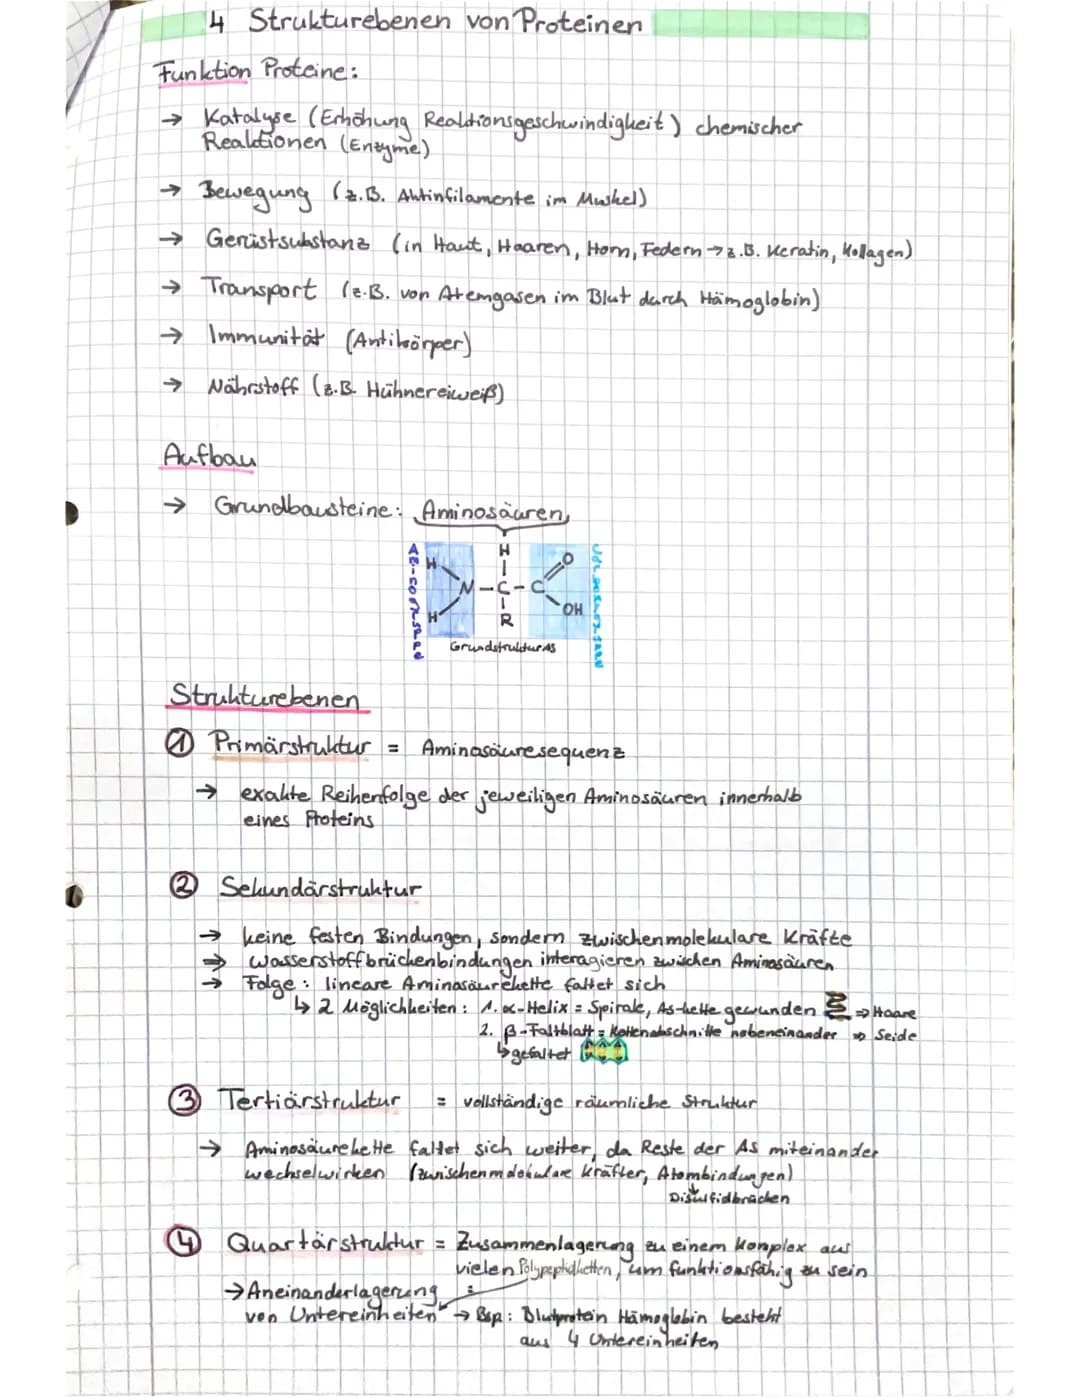 4 Strukturebenen von Proteinen
Funktion Proteine:
→ Katalyse (Erhöhung Reaktionsgeschwindigkeit) chemischer
Reaktionen (Enzyme)
→ Bewegung (z.B. Aktinfilamente im Muskel)
→ Gerüstsubstanz (in Haut, Haaren, Horn, Federn → z.B. Keratin, Kollagen)
→ Transport (z.B. von Atemgasen im Blut durch Hämoglobin)
→ Immunität (Antikörper)
→ Nährstoff (z.B. Hühnereiweiß)
Aufbau
→ Grundbausteine: Aminosäuren
H
H O
N-C-C
H OH
R
Grundstruktur AS
Strukturebenen
① Primärstruktur = Aminosäuresequenz
→ exakte Reihenfolge der jeweiligen Aminosäuren innerhalb
eines Proteins
② Sekundärstruktur
→ keine festen Bindungen, sondern zwischenmolekulare Kräfte
⇒ Wasserstoffbrückenbindungen interagieren zwischen Aminosäuren
→ Folge: lineare Aminosäurekette faltet sich
↳ 2 Möglichkeiten: 1. α-Helix = Spirale, As-kette gewunden ⇒ Haare
2. β-Faltblatt = Kettenabschnitte nebeneinander ⇒ Seide
↳ gefaltet
③ Tertiärstruktur = vollständige räumliche Struktur
→ Aminosäurekette faltet sich weiter, da Reste der AS miteinander
wechselwirken (zwischenmolekulare Kräfter, Atombindungen)
Disulfidbrücken
④ Quartärstruktur = Zusammenlagerung zu einem Komplex aus
vielen Polypeptidketten, um funktionsfähig zu sein
→ Aneinanderlagerung
von Untereinheiten → Bsp: Blutprotein Hämoglobin besteht
aus 4 Untereinheiten